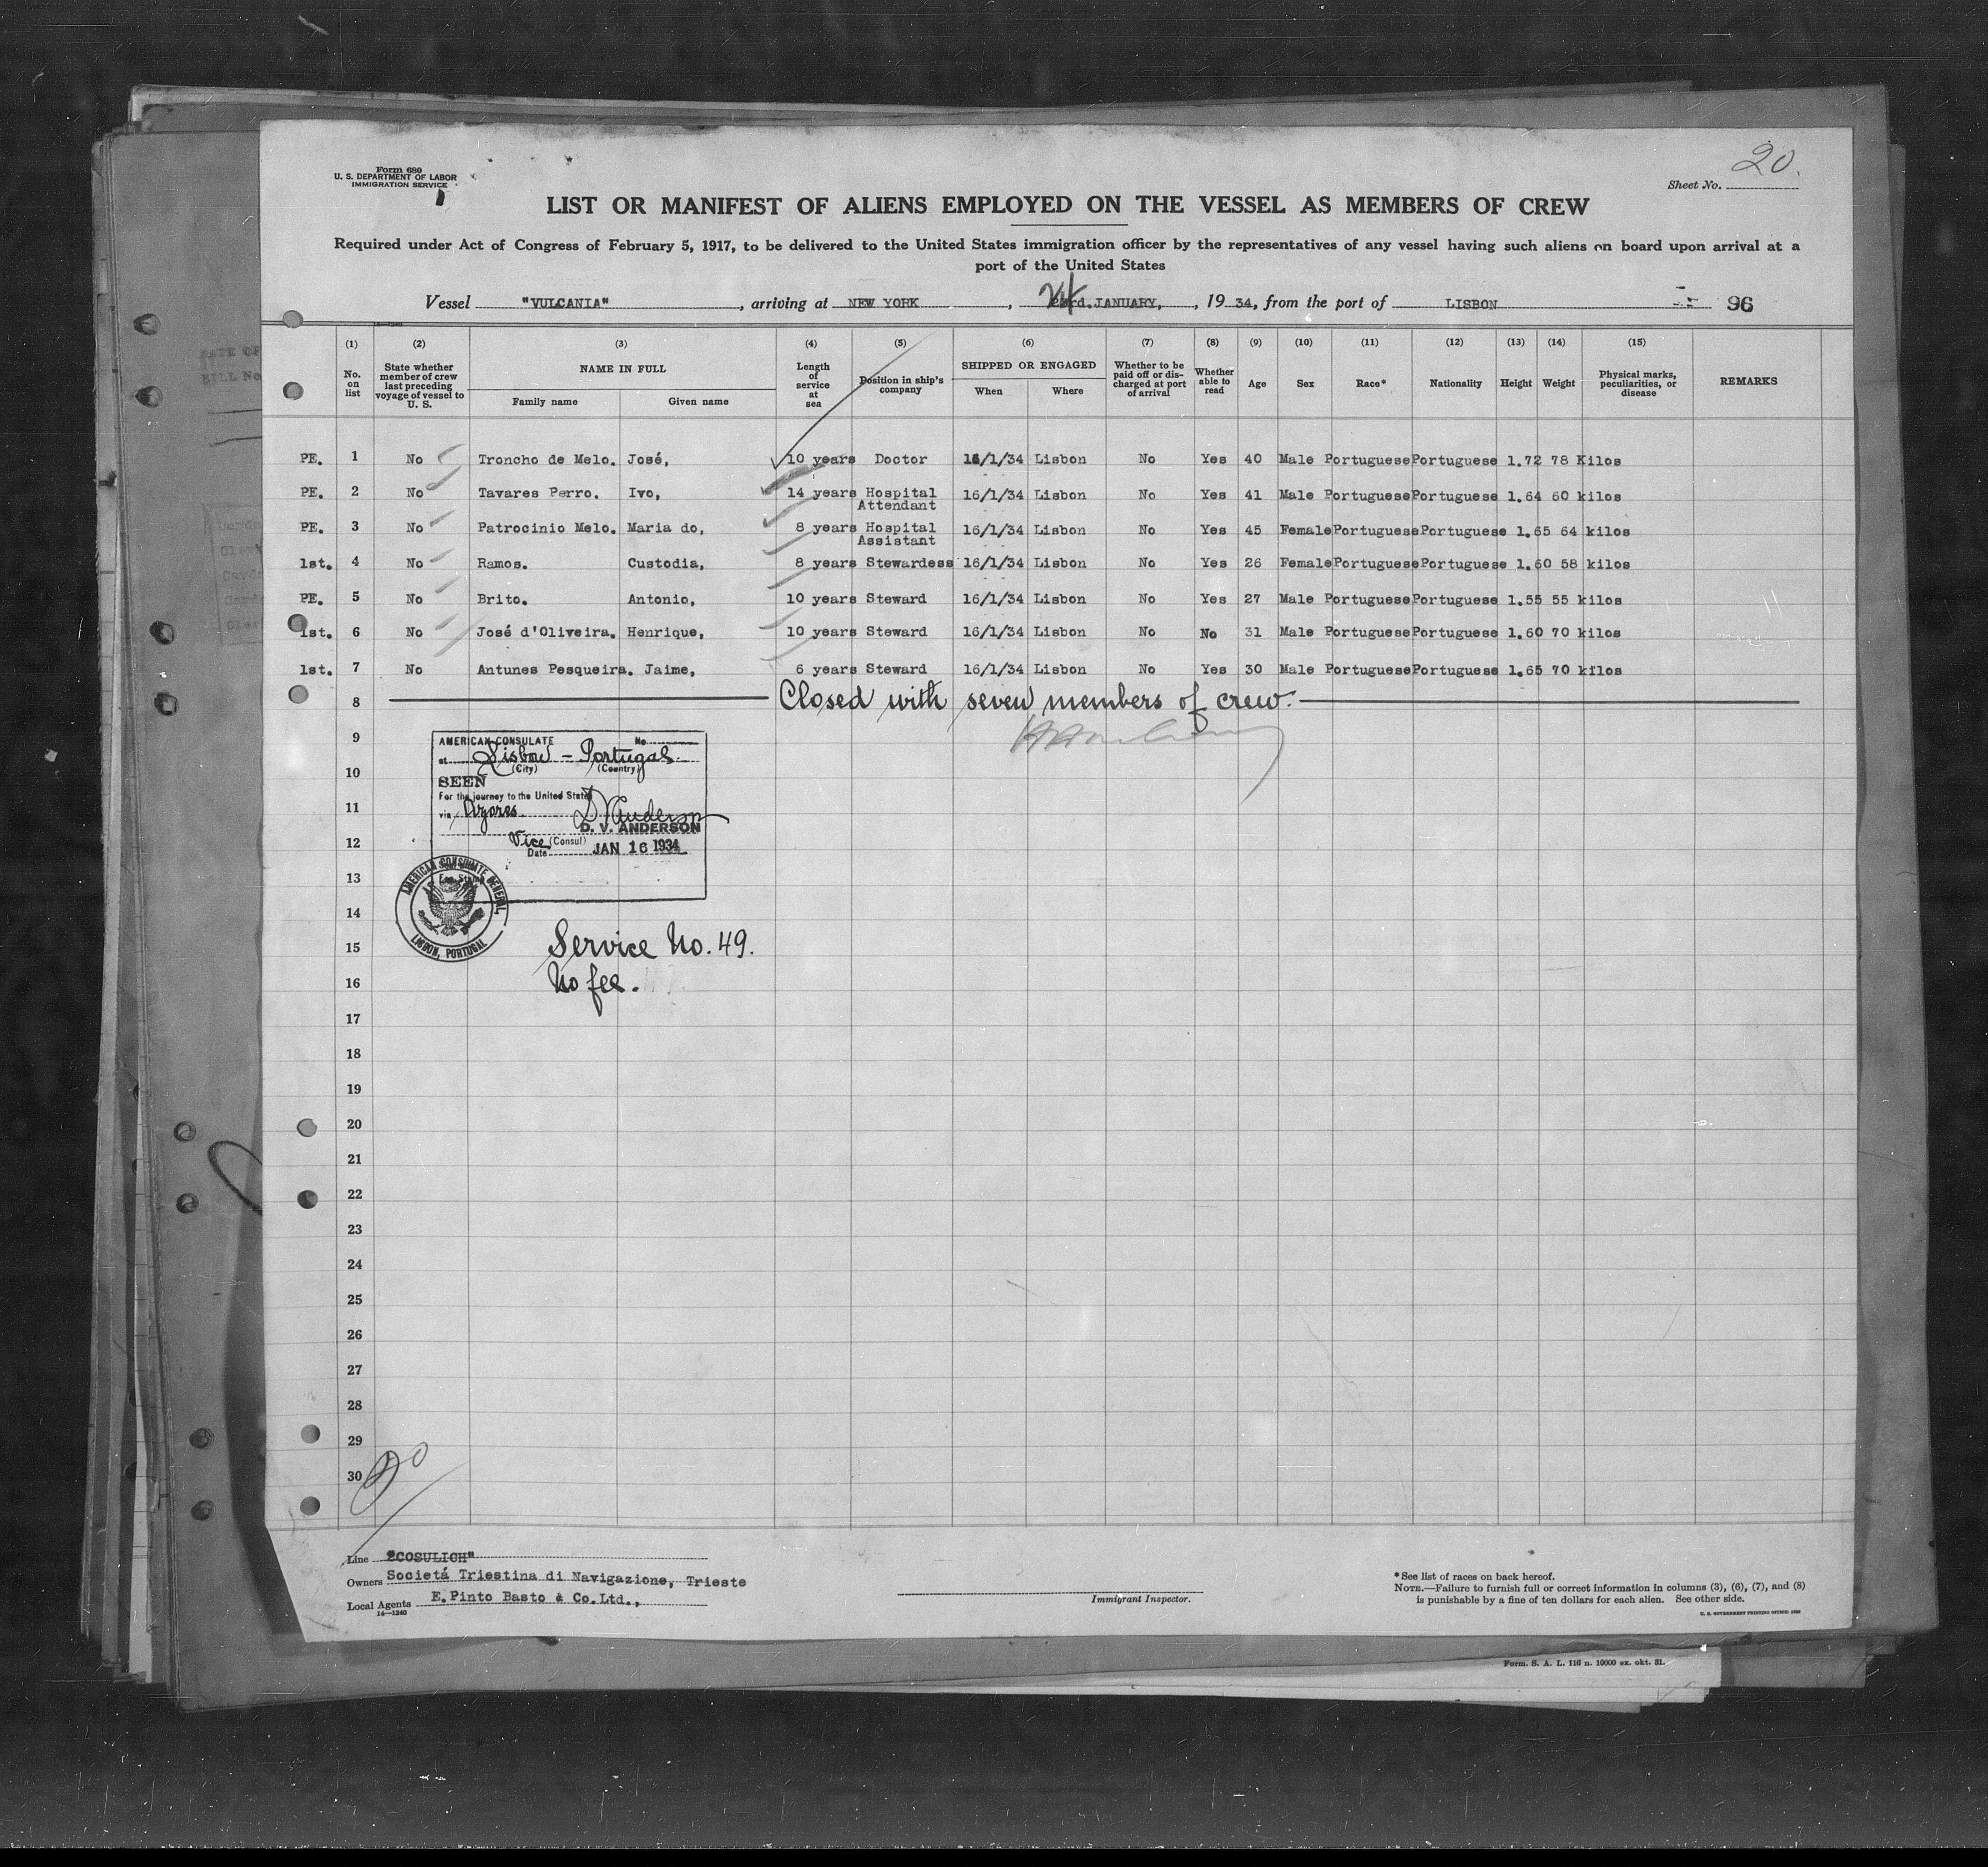 Form 680
U. S. DEPARTMENT OF LABOR
IMMIGRATION SERVICE
20.
Sheet No.
LIST OR MANIFEST OF ALIENS EMPLOYED ON THE VESSEL AS MEMBERS OF CREW
Required under Act of Congress of February 5, 1917, to be delivered to the United States immigration officer by the representatives of any vessel having such aliens on board upon arrival at a
port of the United States
Vessel "VULCANIA", arriving at NEW YORK, 24 23rd. JANUARY, , 19 34, from the port of LISBON 96
14-1240
(1) (2) (3) (4) (5) (6) (7) (8) (9) (10) (11) (12) (13) (14) (15)
No. on list
State whether member of crew last preceding voyage of vessel to U. S.
NAME IN FULL
Family name Given name
Length of service at sea
Position in ship's company
SHIPPED OR ENGAGED
When Where
Whether to be paid off or dis-charged at port of arrival
Whether able to read
Age Sex Race* Nationality Height Weight
Physical marks, peculiarities, or disease
REMARKS
PE. 1 No Troncho de Melo. José, 10 years Doctor 16/1/34 Lisbon No Yes 40 Male Portuguese Portuguese 1.72 78 Kilos
PE. 2 No Tavares Perro. Ivo, 14 years Hospital Attendant 16/1/34 Lisbon No Yes 41 Male Portuguese Portuguese 1.64 60 kilos
PE. 3 No Patrocinio Melo. Maria do, 8 years Hospital Assistant 16/1/34 Lisbon No Yes 45 Female Portuguese Portuguese 1.65 64 kilos
1st. 4 No Ramos. Custodia, 8 years Stewardess 16/1/34 Lisbon No Yes 26 Female Portuguese Portuguese 1.60 58 kilos
PE. 5 No Brito. Antonio, 10 years Steward 16/1/34 Lisbon No Yes 27 Male Portuguese Portuguese 1.55 55 kilos
1st. 6 No José d'Oliveira. Henrique, 10 years Steward 16/1/34 Lisbon No No 31 Male Portuguese Portuguese 1.60 70 kilos
1st. 7 No Antunes Pesqueira. Jaime, 6 years Steward 16/1/34 Lisbon No Yes 30 Male Portuguese Portuguese 1.65 70 kilos
8 Closed with seven members of crew.
9
10
11
12
13
14
15
16
17
18
19
20
21
22
23
24
25
26
27
28
29
30
AMERICAN CONSULATE No.
at Lisbon - Portugal.
(City) (Country)
SEEN
For the journey to the United States
via Azores. D V Anderson
D. V. ANDERSON
Vice (Consul)
Date JAN 16 1934
Fee Stamp
AMERICAN CONSULATE GENERAL
LISBON, PORTUGAL
Service No. 49.
No fee.
20
Line "COSULICH"
Owners Societá Triestina di Navigazione, Trieste
Local Agents E. Pinto Basto & Co. Ltd.,
14-1240
Immigrant Inspector.
*See list of races on back hereof.
NOTE.—Failure to furnish full or correct information in columns (3), (6), (7), and (8)
is punishable by a fine of ten dollars for each alien. See other side.
Form. S. A. L. 116 n. 10000 ex. okt. 31.